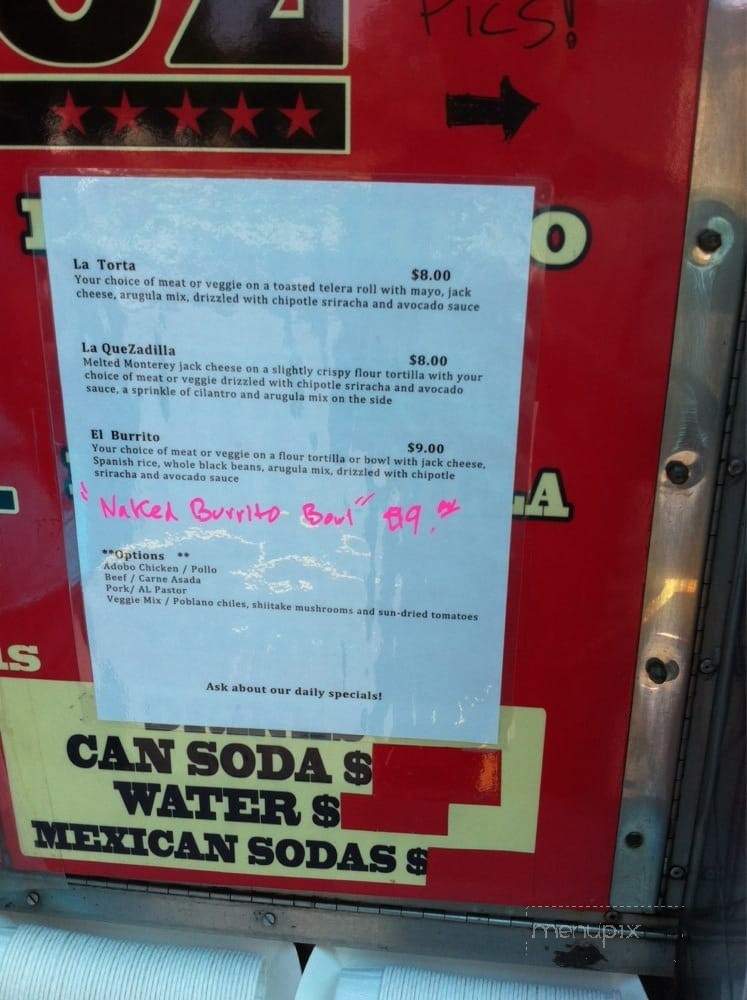 PICS!
La Torta $8.00
Your choice of meat or veggie on a toasted telera roll with mayo, jack
cheese, arugula mix, drizzled with chipotle sriracha and avocado sauce
La QueZadilla $8.00
Melted Monterey jack cheese on a slightly crispy flour tortilla with your
choice of meat or veggie drizzled with chipotle sriracha and avocado
sauce, a sprinkle of cilantro and arugula mix on the side
El Burrito $9.00
Your choice of meat or veggie on a flour tortilla or bowl with jack cheese,
Spanish rice, whole black beans, arugula mix, drizzled with chipotle
sriracha and avocado sauce
"Naked Burrito Bowl" $9.
**Options **
Adobo Chicken / Pollo
Beef / Carne Asada
Pork/ AL Pastor
Veggie Mix / Poblano chiles, shiitake mushrooms and sun-dried tomatoes
Ask about our daily specials!
CAN SODA $
WATER $
MEXICAN SODAS $
menupix